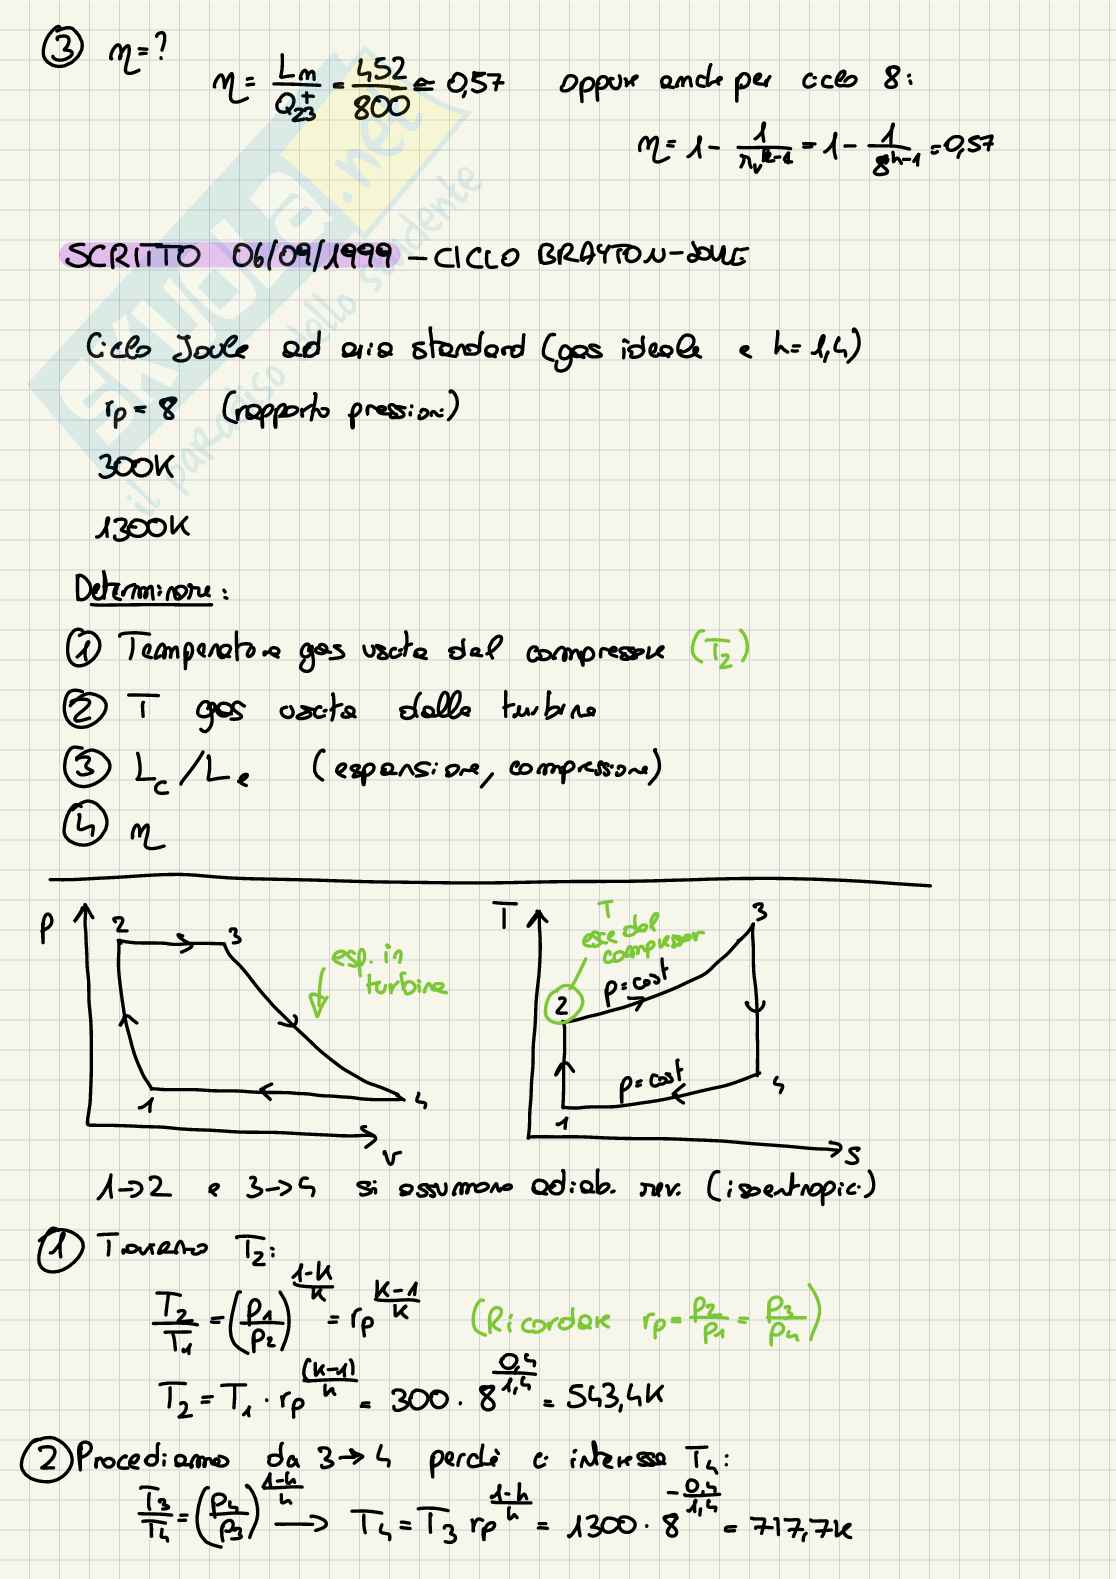 ③ η=?
η = Lm/Q23+ = 452/800 ≅ 0,57 oppure anche per ciclo 8:
η = 1 - 1/rv^(k-1) = 1 - 1/8^(k-1) = 0,57
SCRITTO 06/09/1999 - CICLO BRAYTON-JOULE
Ciclo Joule ad aria standard (gas ideale e k=1,4)
rp = 8 (rapporto pressioni)
300K
1300K
Determinare:
① Temperatura gas uscita dal compressore (T2)
② T gas uscita dalla turbina
③ Lc/Le (espansione, compressione)
④ η
P 2 3 esp. in turbina 1 4 v
T T esce dal compressor 3 2 p=cost p=cost 1 4 s
1→2 e 3→4 si assumono adiab. rev. (isoentropic.)
① Troviamo T2:
T2/T1 = (P1/P2)^((1-K)/K) = rp^((K-1)/K) (Ricordare rp = P2/P1 = P3/P4)
T2 = T1 · rp^((K-1)/K) = 300 · 8^(0,4/1,4) = 543,4K
② Procediamo da 3→4 perchè ci interessa T4:
T3/T4 = (P4/P3)^((1-k)/k) → T4 = T3 rp^((1-k)/k) = 1300 · 8^(-0,4/1,4) = 717,7K
SKUOLA.net
il paradiso dello studente